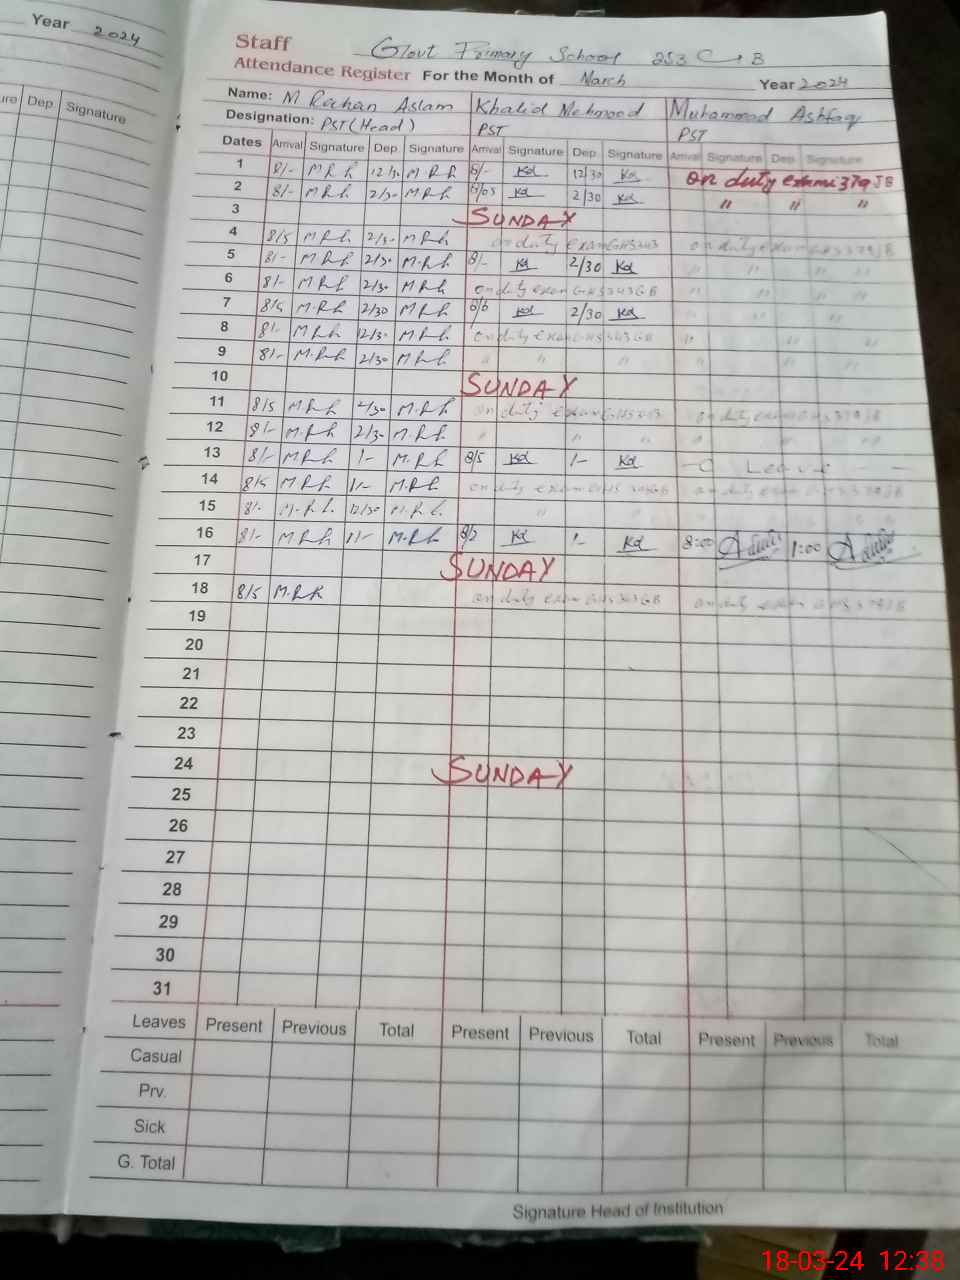 Year 2024
Dep. Signature
Staff Govt Primary School 253 C → B
Attendance Register For the Month of March Year 2024
Name: M Raehan Aslam Khalid Mehmood Muhammad Ashfaq
Designation: PST (Head) PST PST
Dates Arrival Signature Dep. Signature Arrival Signature Dep. Signature Arrival Signature Dep. Signature
1 8/- M R h 12/30 M R h 8/- Kd 12/30 Kd on duty exami 379 JB
2 8/- M R h 2/30 M R h 8/05 Kd 2/30 Kd " " "
3 SUNDAY
4 8/5 M R h 2/30 M R h on duty exam GHS 343 on duty exam GHS 379 JB
5 8/- M R h 2/30 M.R h 8/- Kd 2/30 Kd " " " "
6 8/- M R h 2/30 M R h on duty exam GHS 343 GB " " " "
7 8/5 M.R h 2/30 M R h Kd 2/30 Kd " " "
8 8/- M R h 12/30 M R h on duty exam GHS 343 GB " " "
9 8/- M.R h 2/30 M R h " " " " " "
10 SUNDAY
11 8/5 M.R h 2/30 M.R h on duty exam GHS on duty exam GHS 379 JB
12 8/- M.R h 2/30 M.R h " " " " " "
13 8/- M R h 1- M.R h 8/5 Kd 1- Kd Leave
14 8/5 M R h 1- M.R h on duty exam GHS on duty exam GHS 379 JB
15 8/- M.R h 12/30 M.R h "
16 8/- M R h 1/- M.R h Kd 1- Kd 8:00 1:00
17 SUNDAY
18 8/5 M.R h on duty exam GHS 343 GB on duty exam GHS 379 JB
19
20
21
22
23
24 SUNDAY
25
26
27
28
29
30
31
Leaves Present Previous Total Present Previous Total Present Previous Total
Casual
Prv.
Sick
G. Total
Signature Head of Institution
18-03-24 12:38